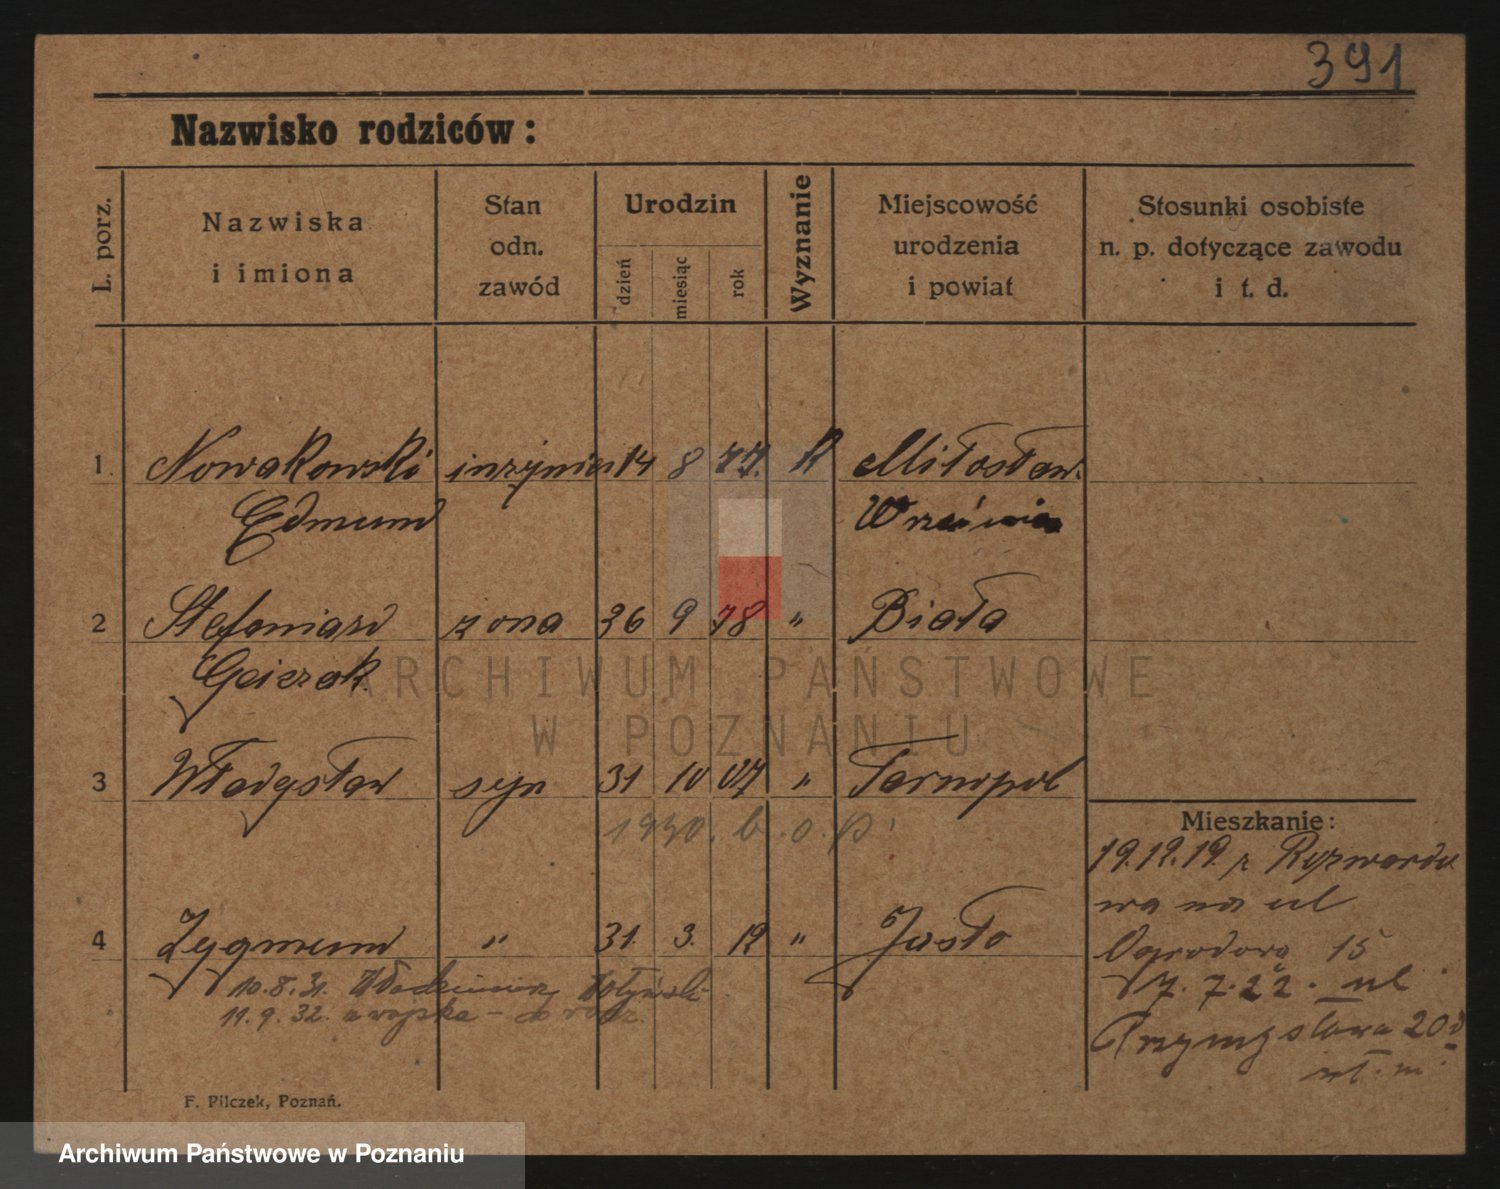 391
Nazwisko rodziców:
L. porz.
Nazwiska
i imiona
Stan
odn.
zawód
Urodzin
dzień
miesiąc
rok
Wyznanie
Miejscowość
urodzenia
i powiat
Stosunki osobiste
n. p. dotyczące zawodu
i t. d.
1. Nowakowski inżynier 14 8 77. Miłosław.
Edmund Września
2 żona 26 9 78 " Biała
3 Władysław syn 31 10 07 " Tarnopol
1930. b. o. p.
Mieszkanie:
19.12.19. z
wa na ul
4 Zygmund " 31. 3. 12 " Jasło
Ogrodowa 15
10.8.31. Włodzimierz
7. 7. 22. ul
11. 9. 32. z wojska –
Przemysłowa 20
F. Pilczek, Poznań.
ARCHIWUM PAŃSTWOWE
W POZNANIU
Archiwum Państwowe w Poznaniu